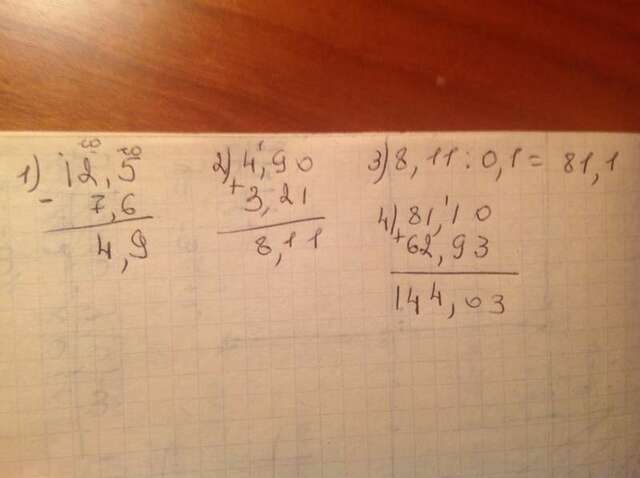 1) 12,5
- 7,6
4,9
2) 4,90
+ 3,21
8,11
3) 8,11 : 0,1 = 81,1
4) 81,10
+ 62,93
144,03